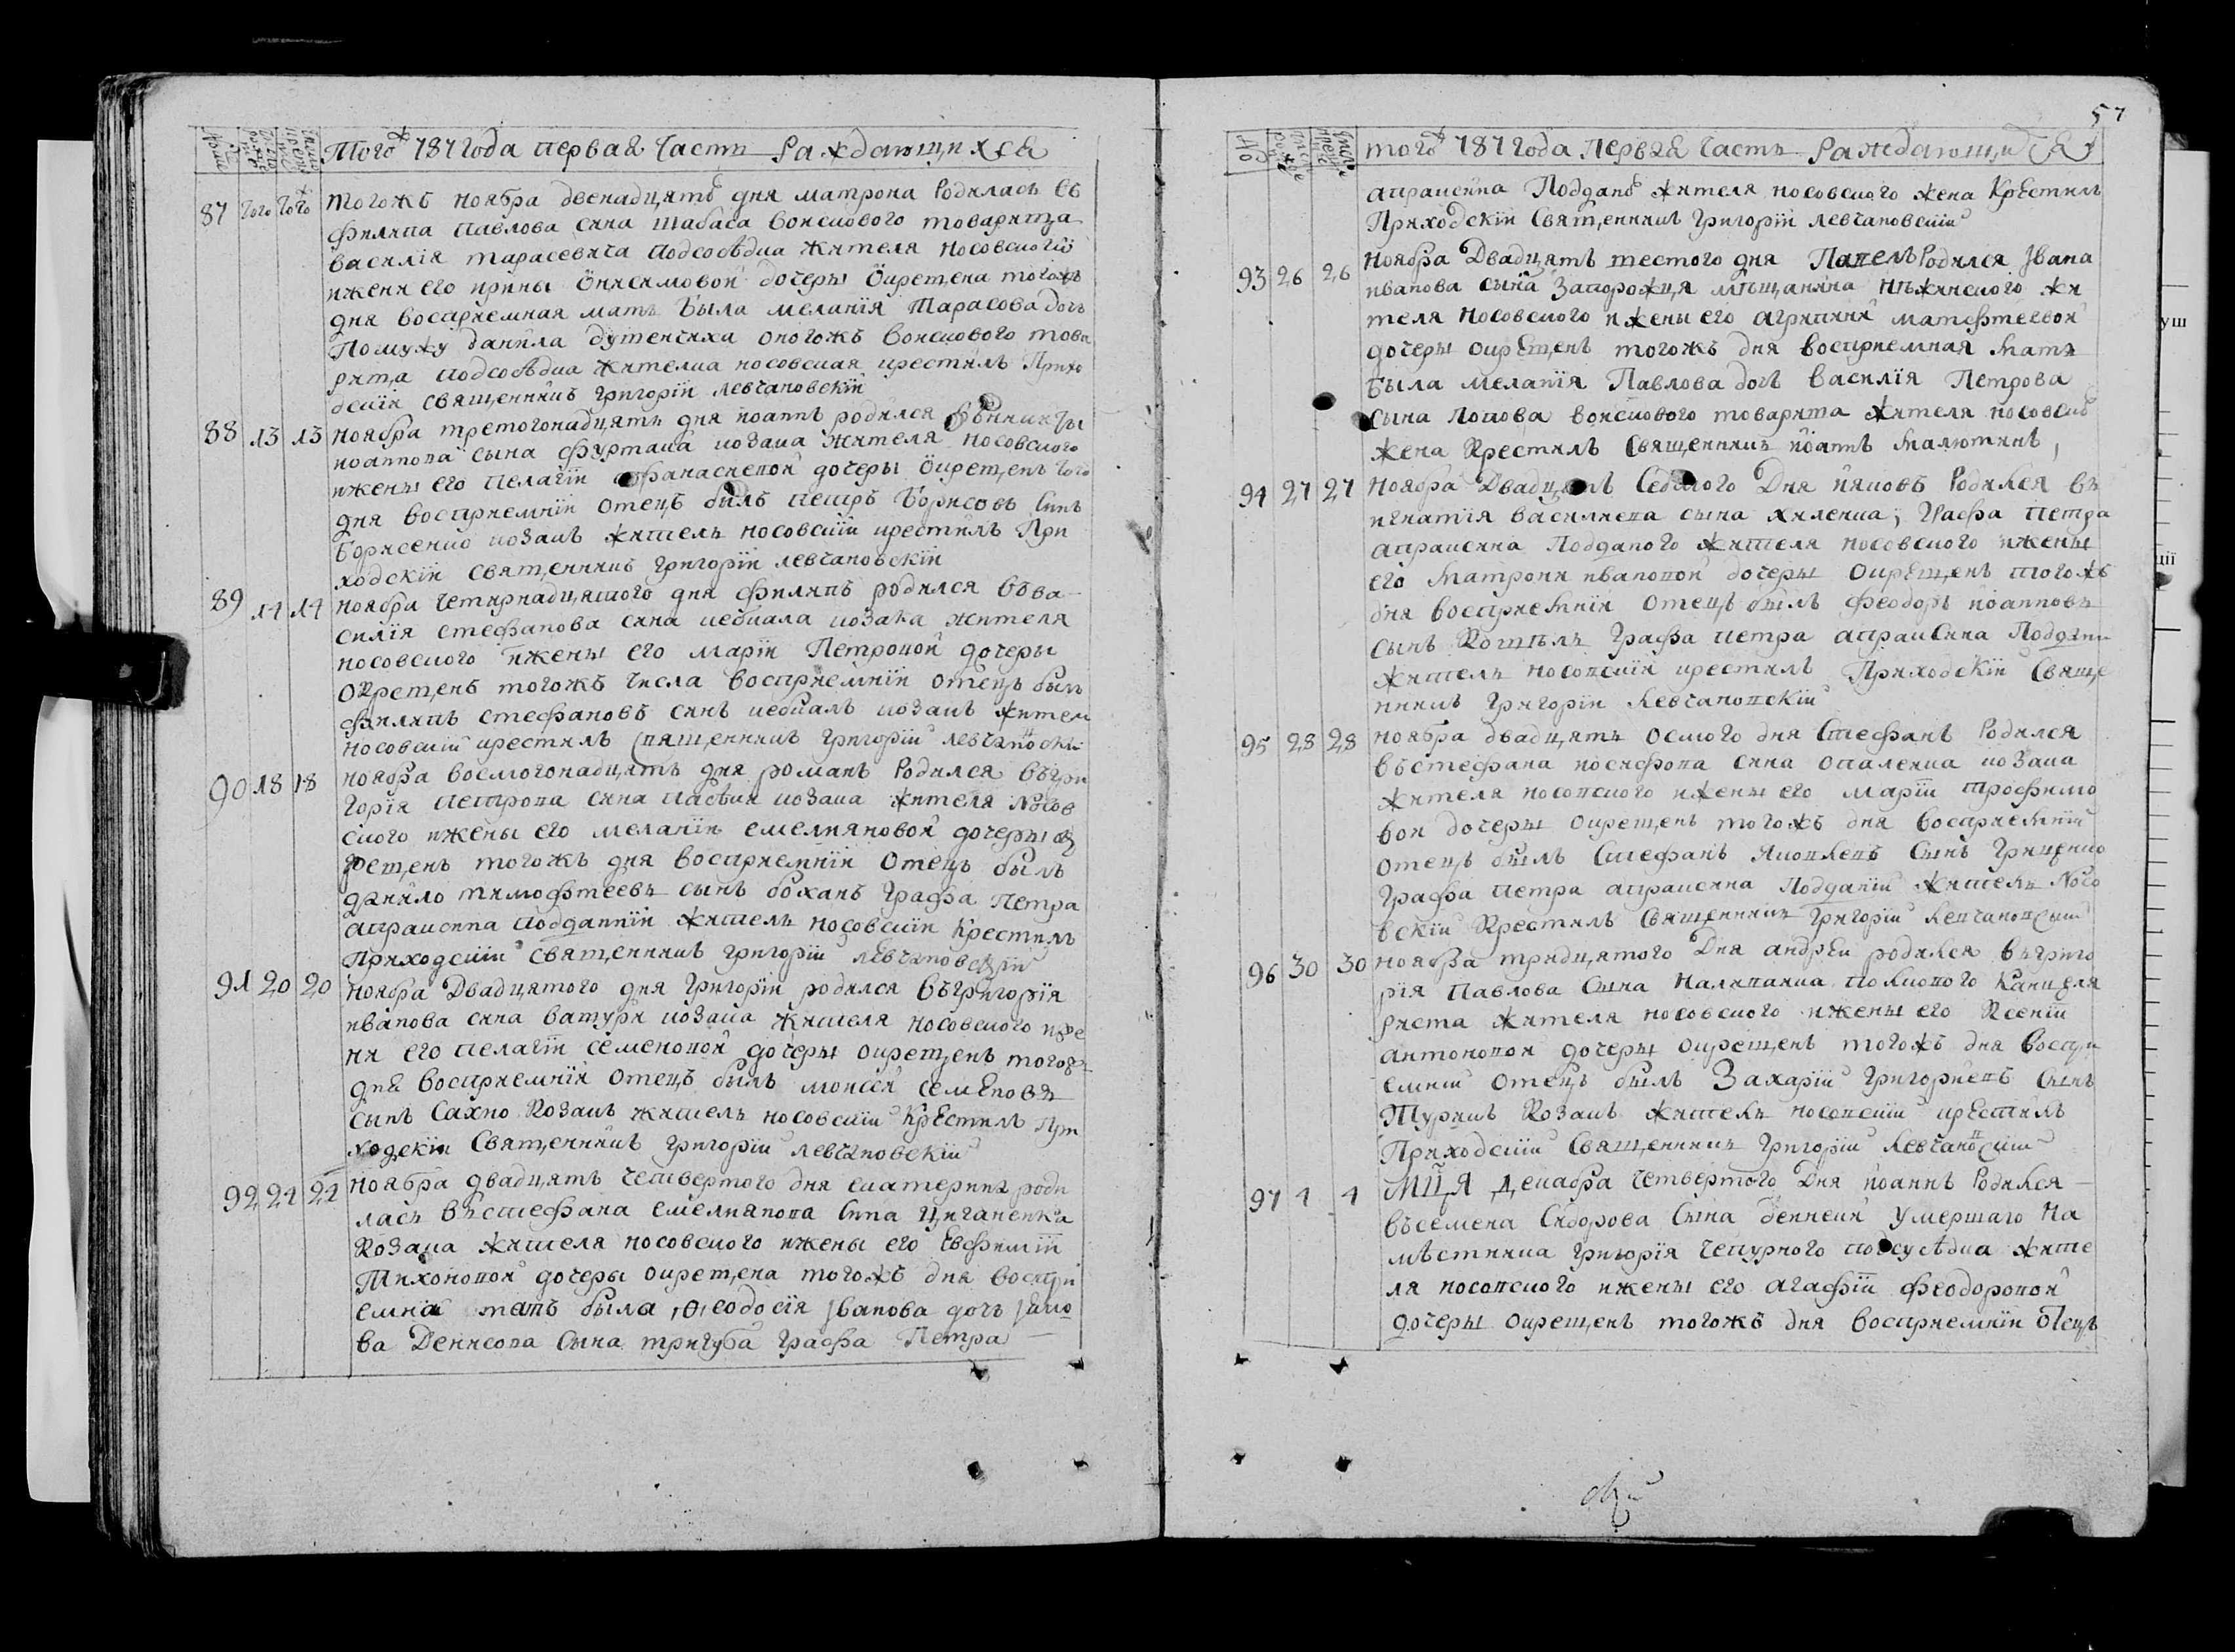 Того 787 года первая часть раждающихся
87 того того тогожъ ноября двенадцять дня матрона родилась въ
филипа павлова сина шабаса воискового товарища
василія тарасевича подсосѣдка жителя носовского
ижени его ирины онисимовой дочеры окрещена тогожъ
дня восприемная мать была меланія тарасова дочь
помужу данила дутенчиха оногожъ воискового това
рища подсосѣдка жителка носовская крестилъ прихо
дский священникъ григорій левчановский
88 13 13 ноября третогонадцять дня иоаннъ родился
иоаннова сына козака жителя носовского
ижены его пелагіи афанасиевой дочеры окрещенъ того
дня восприемний отецъ былъ петръ борисовъ синъ
борисенко козакъ житель носовский крестилъ при
ходский священникъ григорій левчановский
89 14 14 ноября четирнадцятого дня филипъ родился въ ва
силія стефанова сина кебкала козака жителя
носовского ижены его маріи петровой дочеры
окрещенъ тогожъ числа восприемний отецъ былъ
филипъ стефановъ синъ кебкалъ козакъ жител
носовский крестилъ священникъ григорій левчановски
90 18 18 ноября восмогонадцять дня романъ родился въ гри
горія петрова сина пасѣки козака жителя носов
ского ижены его меланіи емелияновой дочеры ок
рещенъ тогожъ дня восприемний отецъ былъ
данило тимофтеевъ сынъ боханъ графа петра
апраксина подданний житель носовский крестилъ
приходский священникъ григорій левчановский
91 20 20 ноября двадцятого дня григорій родился въ григорія
иванова сина батури козака жителя носовского ижé
ни его пелагіи семеновой дочеры окрещенъ тогожъ
дня восприемний отецъ былъ моисей семеновъ
сынъ сахно козакъ житель носовский крестилъ при
ходский священникъ григорій левчановский
92 24 24 ноября двадцять четвертого дня екатерина роди
лась въ стефана емелиянова сина циганенка
козака жителя носовского ижены его евфиміи
тихоновой дочеры окрещена тогожъ дня воспри
емная мать была ѳеодосія иванова дочь яко
ва денисова сына тригуба графа петра
57
того 787 года первая часть раждающихся
апраксина подданого жителя носовского жена крестилъ
приходский священникъ григорій левчановский
93 26 26 ноября двадцять шестого дня павелъ родился ивана
иванова сына запорожця мѣщанина нѣжинского жи
теля носовского ижены его агрипини матефтеевой
дочеры окрещенъ тогожъ дня восприемная мать
была меланія павлова дочь василія петрова
сына попова воискового товариша жителя носовско
жена крестилъ священникъ иоаннъ малютинъ
94 27 27 ноября двадцять седмого дня яковъ родился въ
игнатія василиева сына хиленка, графа петра
апраксина подданого жителя носовского ижены
его матрони ивановой дочеры окрещенъ тогожъ
дня восприемний отецъ былъ феодоръ иоанновъ
сынъ графа петра апраксина подданн
житель носовский крестилъ приходский священ
никъ григорій левчановский
95 28 28 ноября двадцять осмого дня стефанъ родился
въ стефана иосифова сина опаленка козака
жителя носовского ижены его маріи трофимо
вой дочеры окрещенъ тогожъ дня восприемний
отецъ былъ стефанъ яковлевъ сынъ гриценко
графа петра апраксина подданий житель носо
вский крестилъ священникъ григорій левчановский
96 30 30 ноября тридцятого дня андрей родился въ григо
рія павлова сына наливайка полкового канцеля
риста жителя носовского ижены его ксеніи
антоновой дочеры окрещенъ тогожъ дня воспри
емний отецъ былъ захарій григориевъ сынъ
турчинъ козакъ житель носовский крестилъ
приходский священникъ григорій левчановский
97 4 4 мця декабра четвертого дня иоаннъ родился
въ семена сидорова сына умершаго на
мѣстника григорія чепурного подсусѣдка жите
ля носовского ижены его агафіи феодоровой
дочеры окрещенъ тогожъ дня восприемний отецъ